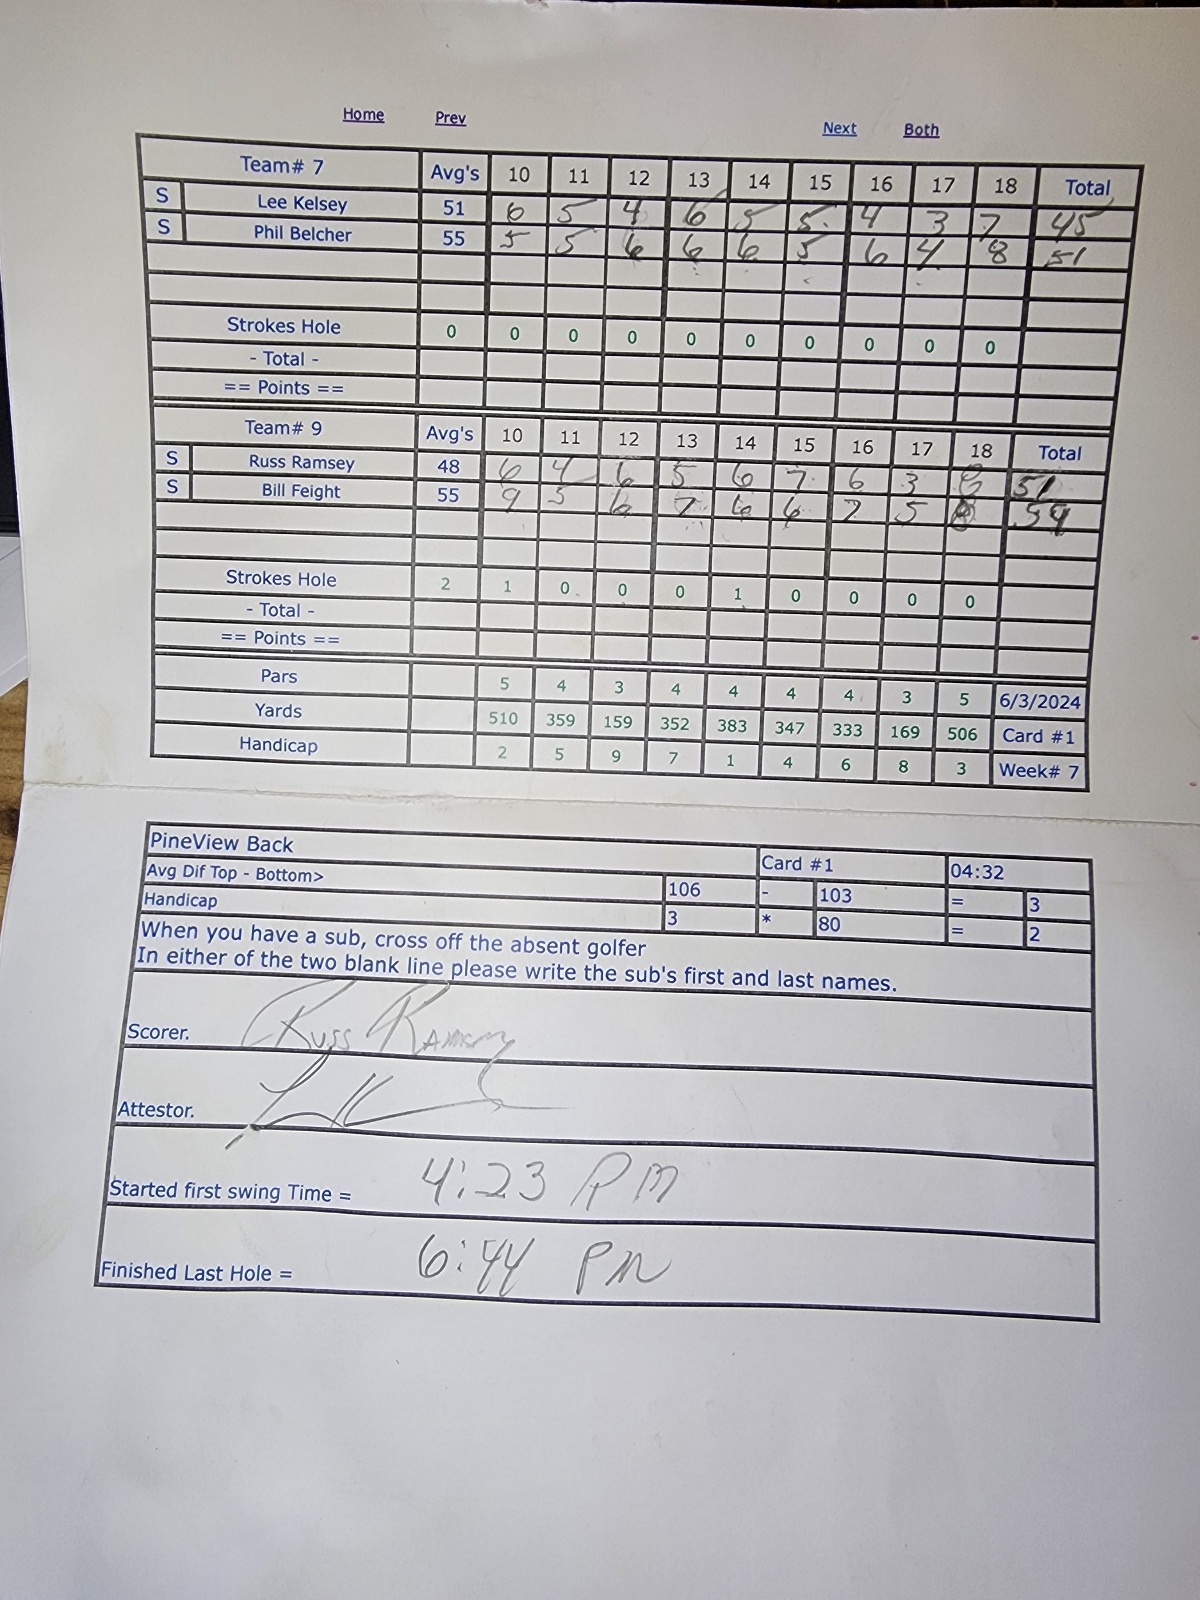 Home Prev Next Both
Team# 7 Avg's 10 11 12 13 14 15 16 17 18 Total
S Lee Kelsey 51 6 5 4 6 5 5 4 3 7 45
S Phil Belcher 55 5 5 6 6 6 5 6 4 8 51
Strokes Hole 0 0 0 0 0 0 0 0 0 0
- Total -
== Points ==
Team# 9 Avg's 10 11 12 13 14 15 16 17 18 Total
S Russ Ramsey 48 6 4 6 5 6 7 6 3 8 51
S Bill Feight 55 9 5 6 7 6 6 7 5 8 59
Strokes Hole 2 1 0 0 0 1 0 0 0 0
- Total -
== Points ==
Pars 5 4 3 4 4 4 4 3 5 6/3/2024
Yards 510 359 159 352 383 347 333 169 506 Card #1
Handicap 2 5 9 7 1 4 6 8 3 Week# 7
PineView Back Card #1 04:32
Avg Dif Top - Bottom> 106 - 103 = 3
Handicap 3 * 80 = 2
When you have a sub, cross off the absent golfer
In either of the two blank line please write the sub's first and last names.
Scorer. Russ Ramsey
Attestor.
Started first swing Time = 4:23 PM
Finished Last Hole = 6:44 PM